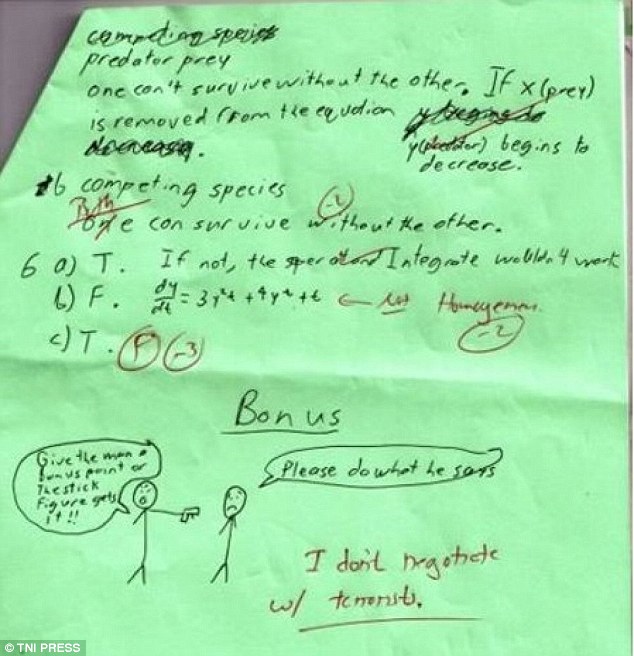 competing species
predator prey
one can't survive without the other. If x (prey)
is removed from the equation y begins to
decrease. y(predator) begins to
decrease.
1b competing species -2
Both
one can survive without the other.
6 a) T. If not, the Integrate wouldn't work
b) F. dy/dt = 3y²t + 4y^t + t ← not Homogenous.
-2
c) T. F -3
Bonus
Give the man a
bonus point or
the stick
figure gets
it!!
Please do what he says
I don't negotiate
w/ terrorists.
© TNI PRESS